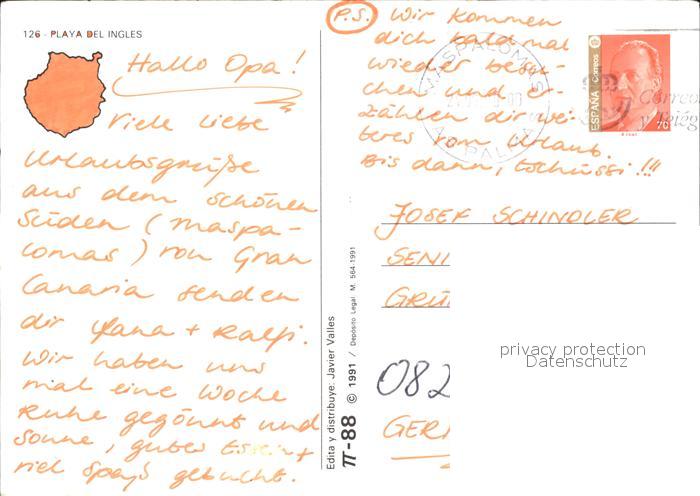 126 - PLAYA DEL INGLES
Hallo Opa!
Viele liebe
Urlaubsgrüße
aus dem schönen
Süden (Maspa-
lomas) von Gran
Canaria senden
dir + Ralfi.
Wir haben uns
mal eine Woche
Ruhe gegönnt und
Sonne, gutes Essen +
viel Spaß gebucht.
Edita y distribuye: Javier Valles
π-88 © 1991 / Depósito Legal: M. 564-1991
P.S. Wir kommen
dich bald mal
wieder besu-
chen und er-
zählen dir wei-
teres vom Urlaub.
Bis dann, tschüssi!!!
MASPALOMAS
LAS PALMAS
ESPAÑA Correos
70
Correos
y Telég
JOSEF SCHINDLER
SENI
GRÜ
082
GER
privacy protection
Datenschutz